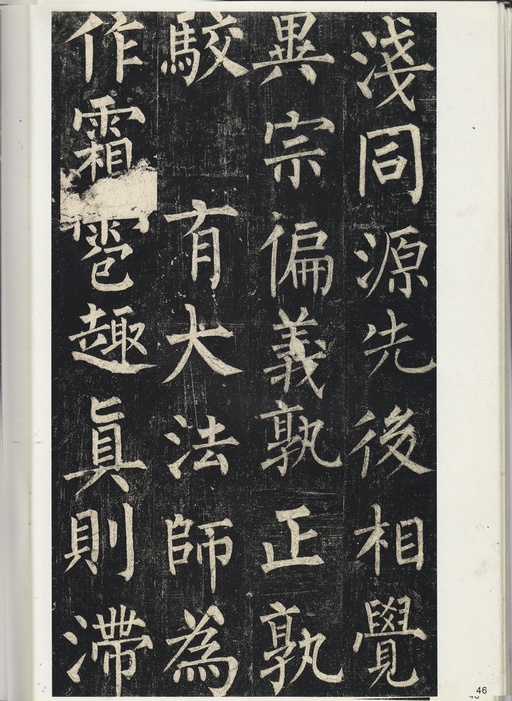 淺同源先後相覺
異宗偏義孰正孰
駮 有大法師為
作霜雹趣眞則滯
46